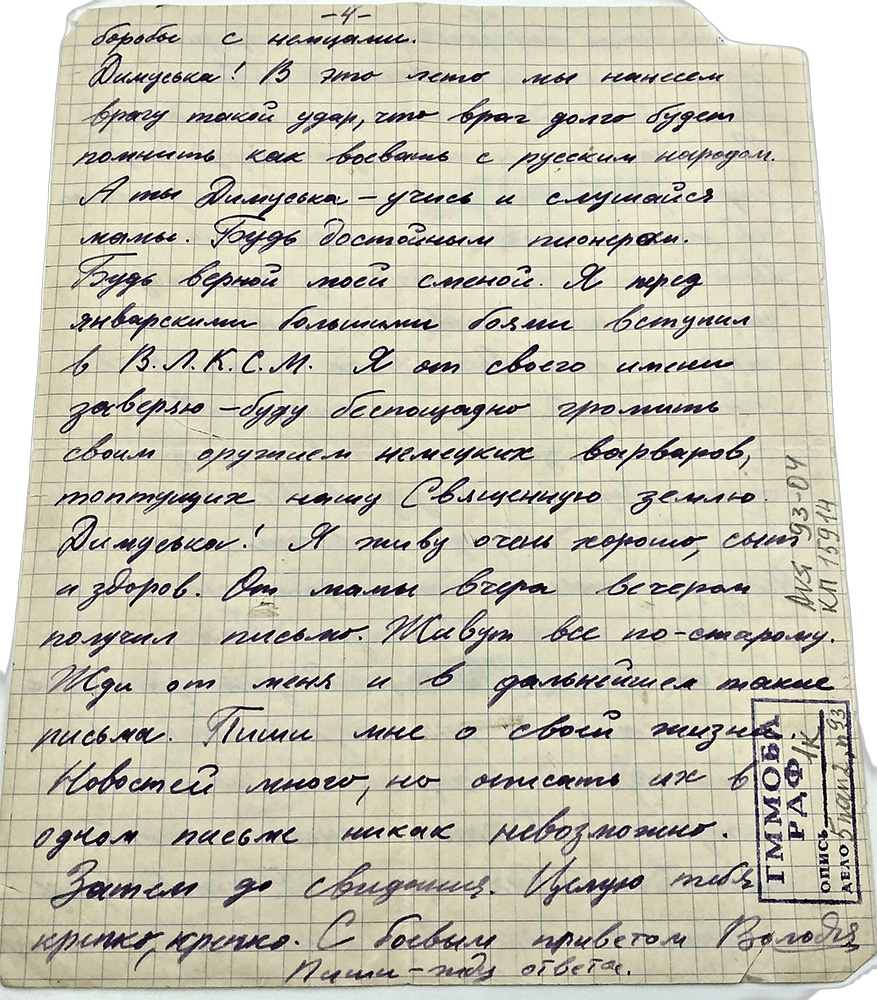 -4-
борьбы с немцами.
Димуська! В это лето мы нанесем
врагу такой удар, что враг долго будет
помнить как воевать с русским народом.
А ты Димуська – учись и слушайся
мамы. Будь достойным пионером.
Будь верной моей сменой. Я перед
январскими большими боями вступил
в В.Л.К.С.М. Я от своего имени
заверяю – буду беспощадно громить
своим оружием немецких варваров,
топтущих нашу Священную землю.
Димуська! Я живу очень хорошо, сыт
и здоров. От мамы вчера вечером
получил письмо. Живут все по-старому.
Жди от меня и в дальнейшем такие
письма. Пиши мне о своей жизни.
Новостей много, но описать их в
одном письме никак невозможно.
Затем до свидания. Целую тебя
крепко, крепко. С боевым приветом Володя
Пиши – жду ответа.
93-04
КП 15914
ГММОБЛ
РДФ 1К
ОПИСЬ
ДЕЛО 5 пап 2, п 93